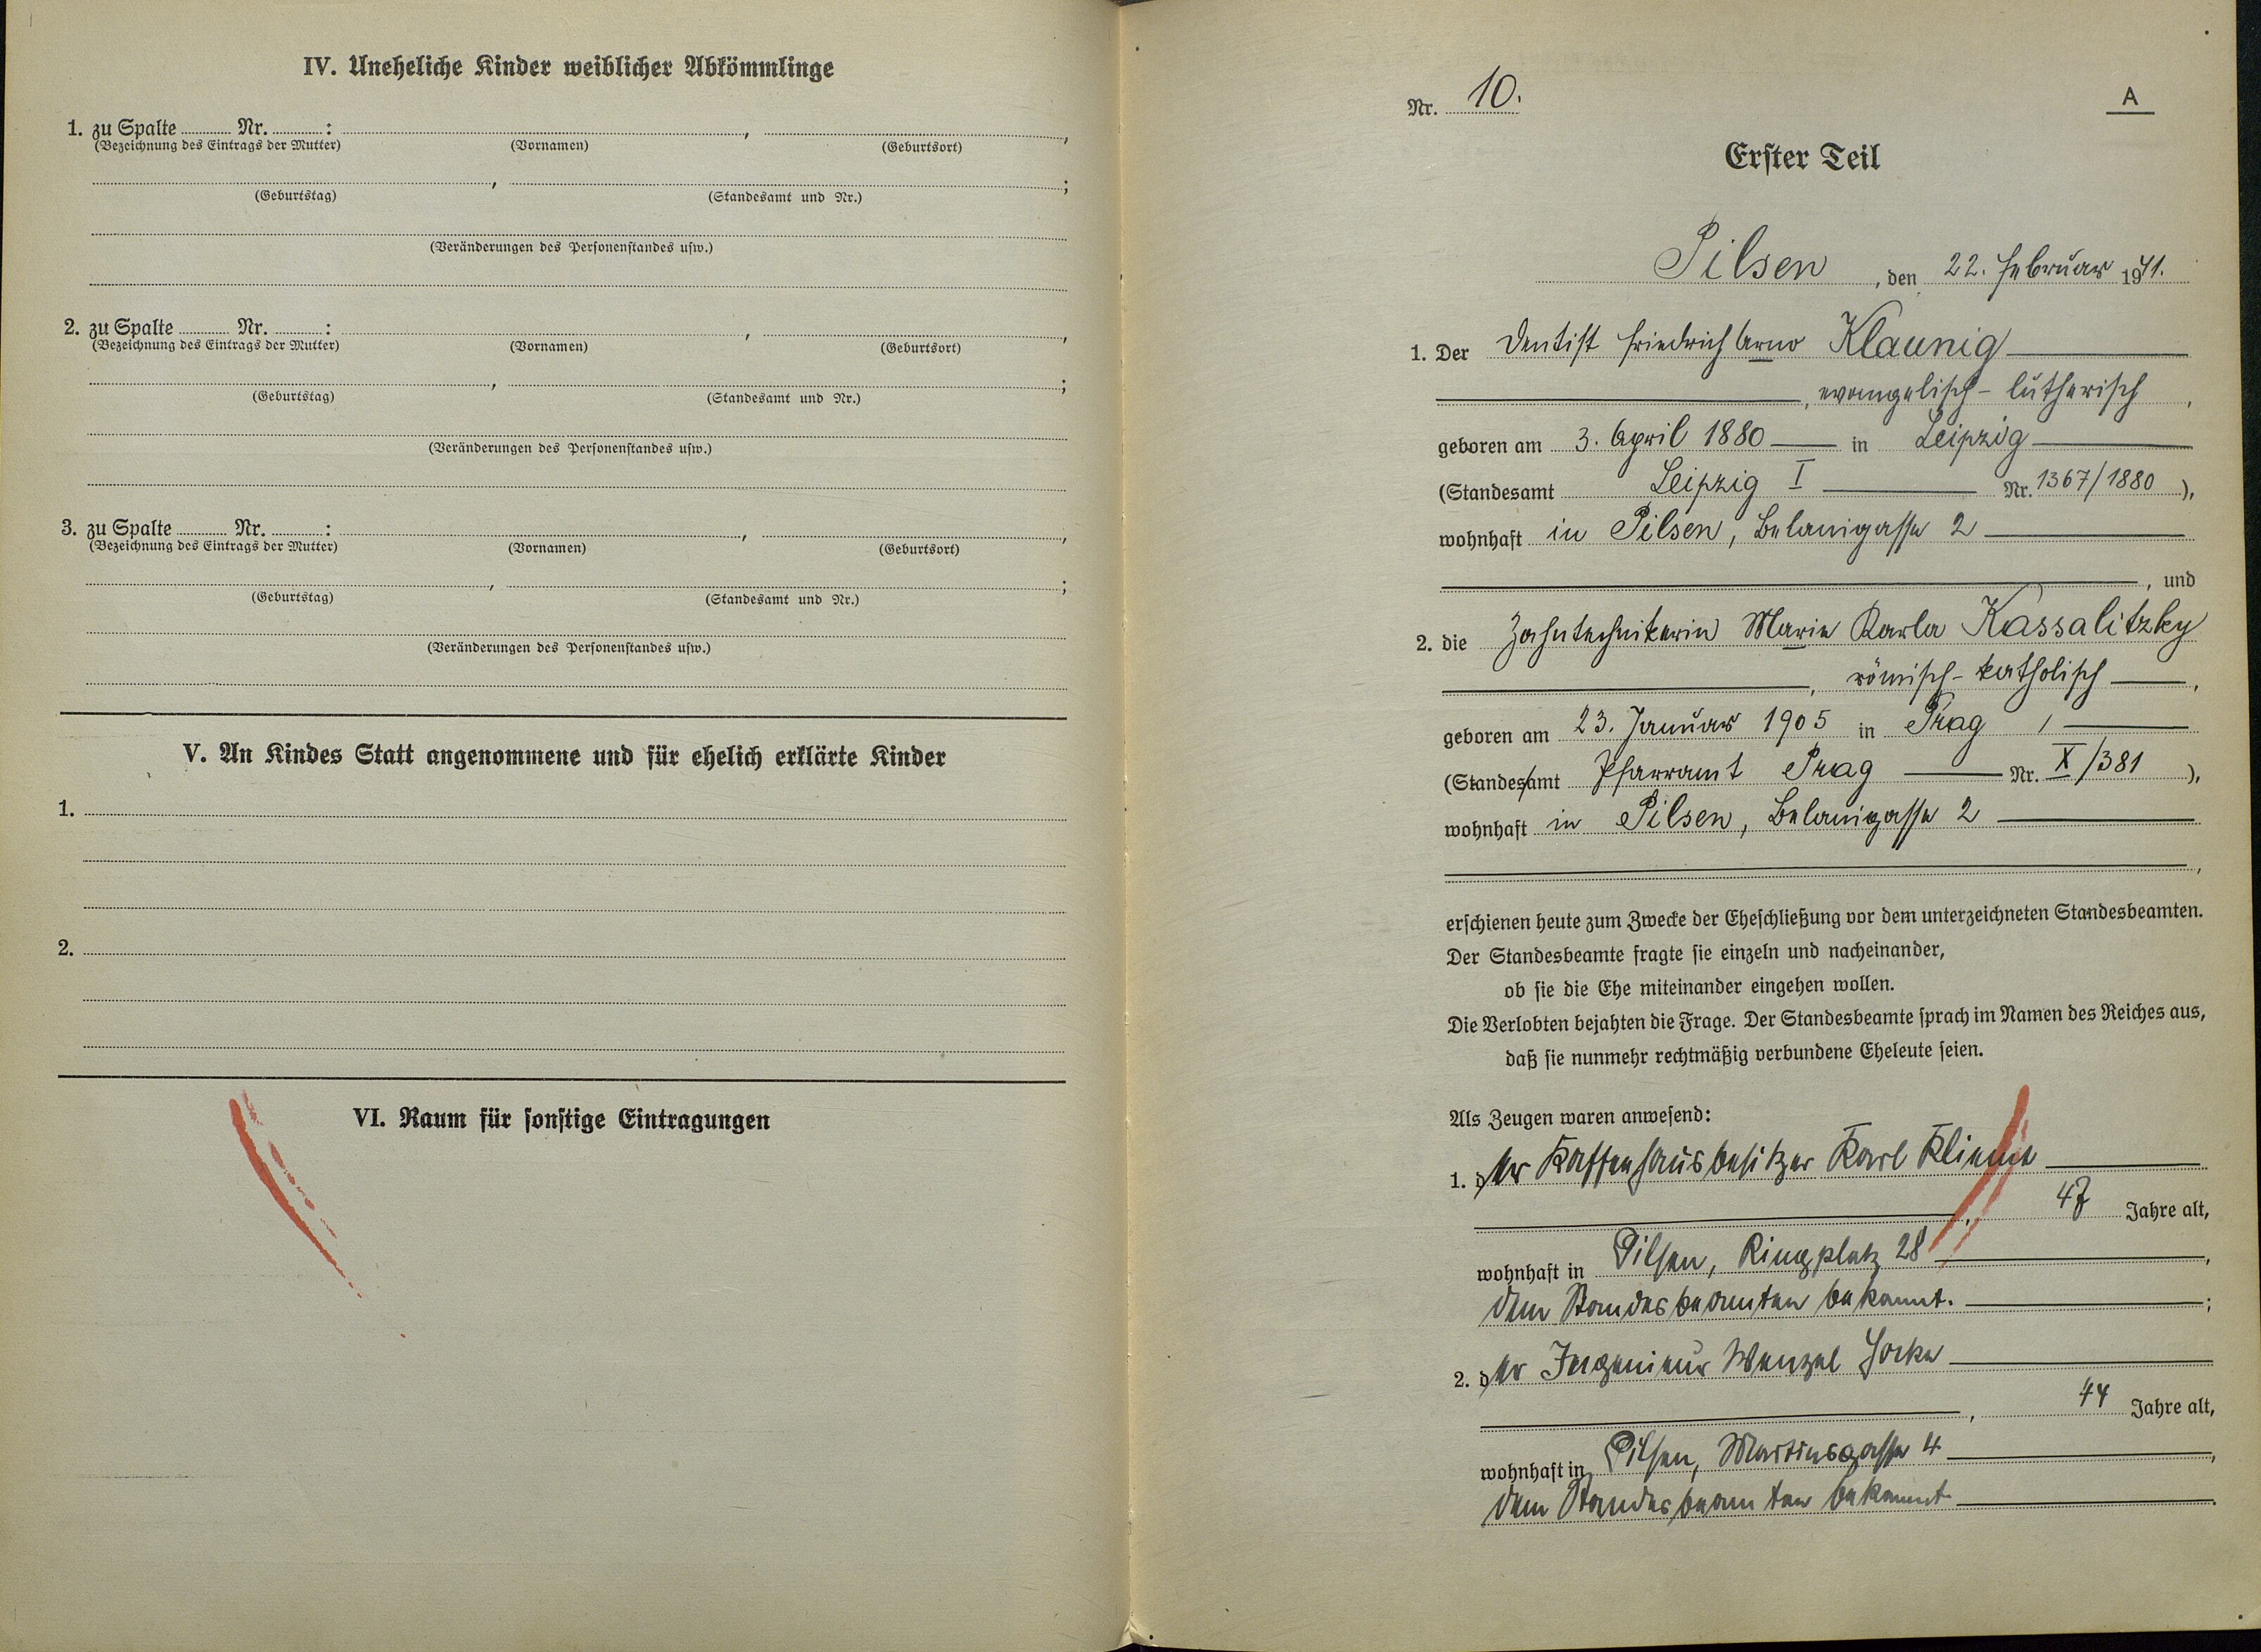 IV. Uneheliche Kinder weiblicher Abkömmlinge
1. zu Spalte ........ Nr. ........ : ........ , ........ ,
(Bezeichnung des Eintrags der Mutter) (Vornamen) (Geburtsort)
........ , ........ ;
(Geburtstag) (Standesamt und Nr.)
(Veränderungen des Personenstandes usw.)
2. zu Spalte ........ Nr. ........ : ........ , ........ ,
(Bezeichnung des Eintrags der Mutter) (Vornamen) (Geburtsort)
........ , ........ ;
(Geburtstag) (Standesamt und Nr.)
(Veränderungen des Personenstandes usw.)
3. zu Spalte ........ Nr. ........ : ........ , ........ ,
(Bezeichnung des Eintrags der Mutter) (Vornamen) (Geburtsort)
........ , ........ ;
(Geburtstag) (Standesamt und Nr.)
(Veränderungen des Personenstandes usw.)
V. An Kindes Statt angenommene und für ehelich erklärte Kinder
1.
2.
VI. Raum für sonstige Eintragungen
Nr. 10.
A
Erster Teil
Pilsen, den 22. Februar 1941.
1. Der Dentist Friedrich Arno Klaunig
, evangelisch-lutherisch,
geboren am 3. April 1880 in Leipzig
(Standesamt Leipzig I Nr. 1367/1880),
wohnhaft in Pilsen, Belanigasse 2
, und
2. die Zahntechnikerin Marie Karla Kassalitzky
, römisch-katholisch,
geboren am 23. Januar 1905 in Prag
(Standesamt Pfarramt Prag Nr. X/381),
wohnhaft in Pilsen, Belanigasse 2
,
erschienen heute zum Zwecke der Eheschließung vor dem unterzeichneten Standesbeamten.
Der Standesbeamte fragte sie einzeln und nacheinander,
ob sie die Ehe miteinander eingehen wollen.
Die Verlobten bejahten die Frage. Der Standesbeamte sprach im Namen des Reiches aus,
daß sie nunmehr rechtmäßig verbundene Eheleute seien.
Als Zeugen waren anwesend:
1. der Kaffeehausbesitzer Karl
, 47 Jahre alt,
wohnhaft in Pilsen, Ringplatz 28,
dem Standesbeamten bekannt. ;
2. der Ingenieur Wenzel
, 44 Jahre alt,
wohnhaft in Pilsen, Martinsgasse 4,
dem Standesbeamten bekannt.